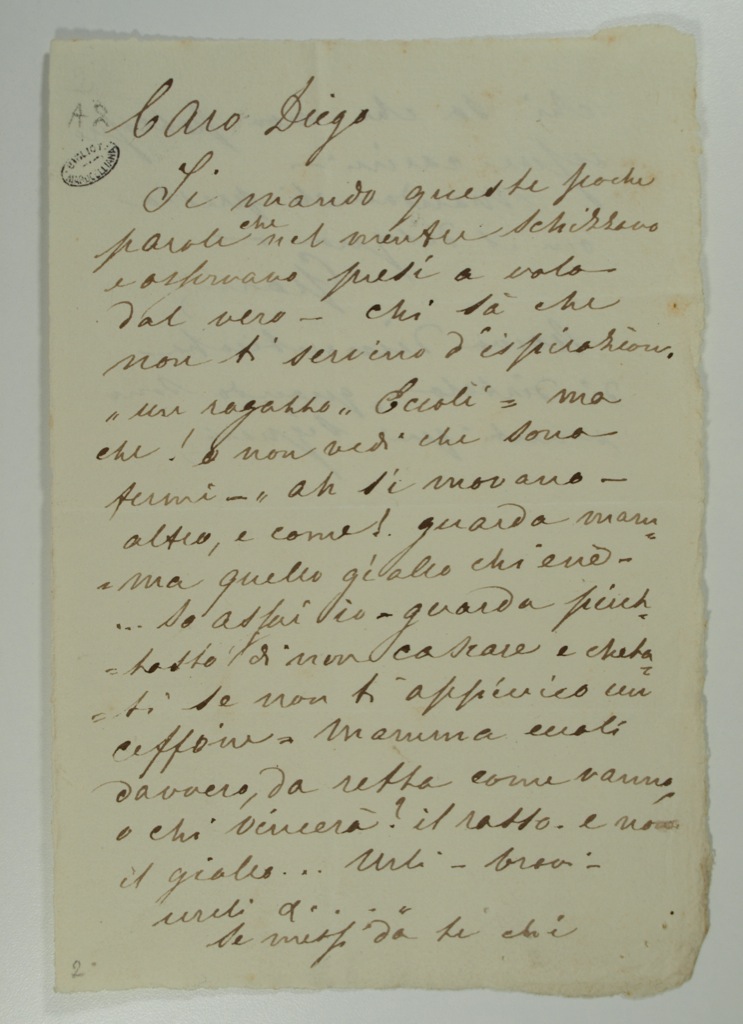 A 2
Caro Diego
Ti mando queste poche
parole che nel mentre schizzavo
e osservavo presi a volo
dal vero – chi sà che
non ti servino d'ispirazion.
„ un ragazzo „ Eccoli = ma
che! o non vedi che sono
fermi – „ ah si movano –
altro, e come!. guarda mam
= ma quello giallo chi enè –
... So assai io – guarda piut
= tosto di non cascare e cheta
= ti se non ti appiccico un
ceffone = Mamma eccoli
davvero, da retta come vanno,
o chi vincerà? il rosso. e no
il giallo... Urli – bravi –
urli a . . . . "
Se messi da te chi
2